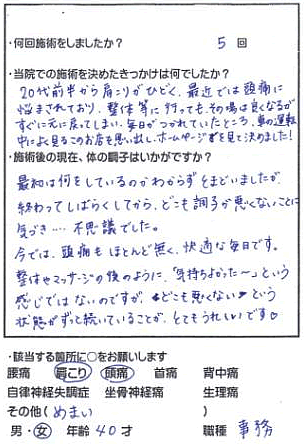 ・何回施術をしましたか？
5 回
・当院での施術を決めたきっかけは何でしたか？
20代前半から肩こりがひどく、最近では頭痛に
悩まされており、整体等に行っても、その場は良くなるが
すぐに元に戻ってしまい、毎日がつかれていたところ、車の運転
中によく見るこのお店を思い出し、ホームページを見て決めました!
・施術後の現在、体の調子はいかがですか？
最初は何をしているのかわからずとまどいましたが、
終わってしばらくしてから、どこも調子が悪くないことに
気づき…. 不思議でした。
今では、頭痛もほとんど無く、快適な毎日です。
整体やマッサージの後のように、「気持ちよかった〜」という
感じではないのですが、“どこも悪くない”という
状態がずっと続いていることが、とてもうれしいです♡
・該当する箇所に○をお願いします
腰痛 肩こり 頭痛 首痛 背中痛
自律神経失調症 坐骨神経痛 生理痛
その他（めまい ）
男・女 年齢 40 才 職種 事務